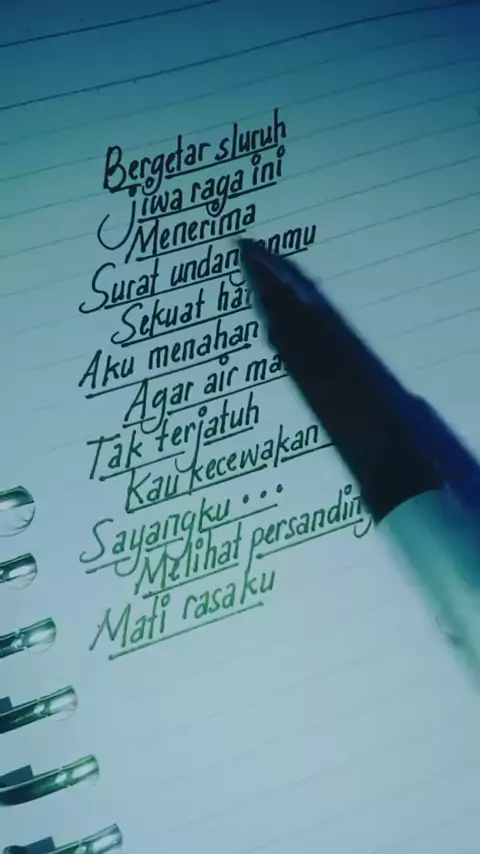 Bergetar sluruh
jiwa raga ini
Menerima
Surat undanganmu
Sekuat
Aku menahan
Agar air
Tak terjatuh
Kau kecewakan
Sayangku...
Melihat
Mati rasaku